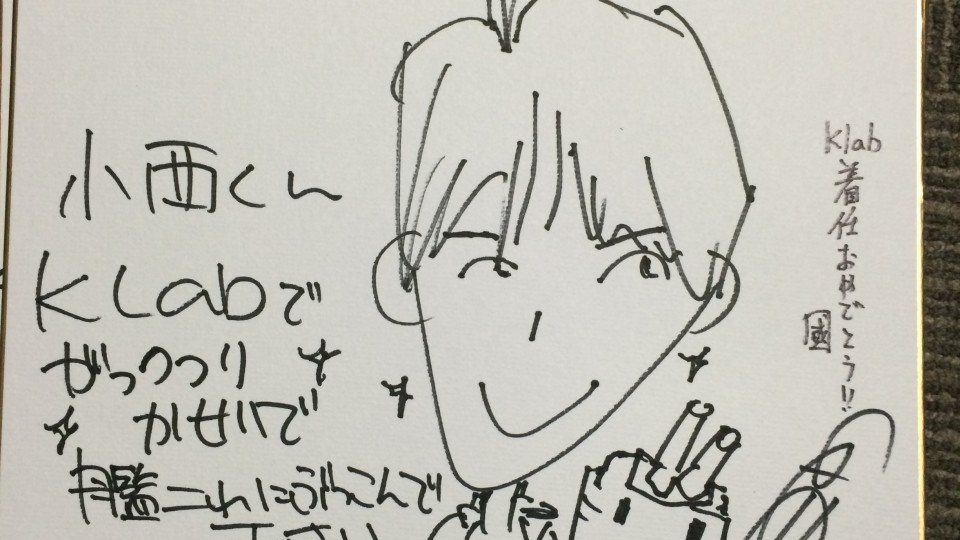 小西くん
KLabで
がっつり
かせいで
艦これにぶっこんで
下さい
Klab着任おめでとう!!
國